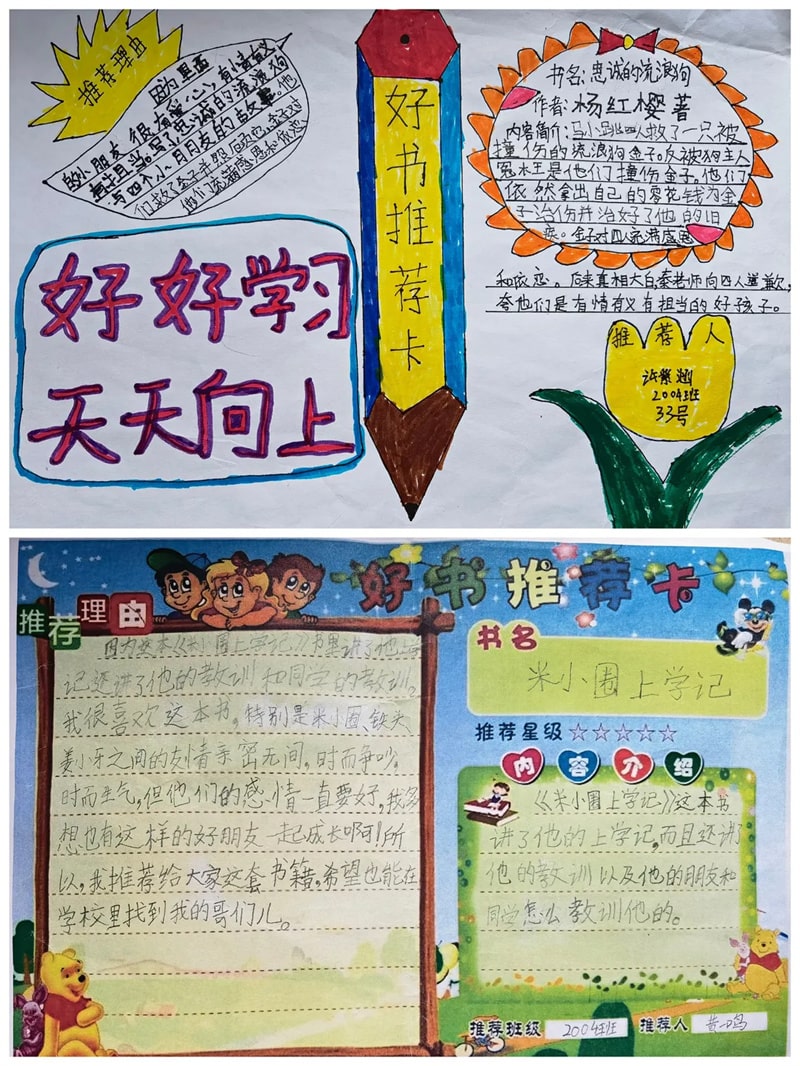 推荐理由
因为里面
的小朋友很有爱心,有情有义
有担当。写忠诚的流浪狗
与四个小月朋友的故事。他
们救了金子并照顾它,金子对
他们充满感恩和依恋
好好学习
天天向上
好书推荐卡
书名:忠诚的流浪狗
作者:杨红樱著
内容简介:马小跳四人救了一只被
撞伤的流浪狗金子。反被狗主人
冤枉是他们撞伤金子。他们
依然拿出自己的零花钱为金
子治伤并治好了他的旧
疾。金子对四人充满感恩
和依恋。后来真相大白秦老师向四人道歉,
夸他们是有情有义有担当的好孩子。
推荐人
许紫涵
2004班
33号
好书推荐卡
推荐理由
因为这本《米小圈上学记》书里讲了他
记还讲了他的教训和同学的教训。
我很喜欢这本书,特别是米小圈、铁头、
姜小牙之间的友情亲密无间。时而争吵,
时而生气,但他们的感情一直要好,我多
想也有这样的好朋友一起成长啊!所
以,我推荐给大家这套书籍,希望也能在
学校里找到我的哥们儿。
书名
米小圈上学记
推荐星级☆☆☆☆☆
内容介绍
《米小圈上学记》这本书
讲了他的上学记,而且还讲
他的教训以及他的朋友和
同学怎么教训他的。
推荐班级 2004班 推荐人 黄一鸣